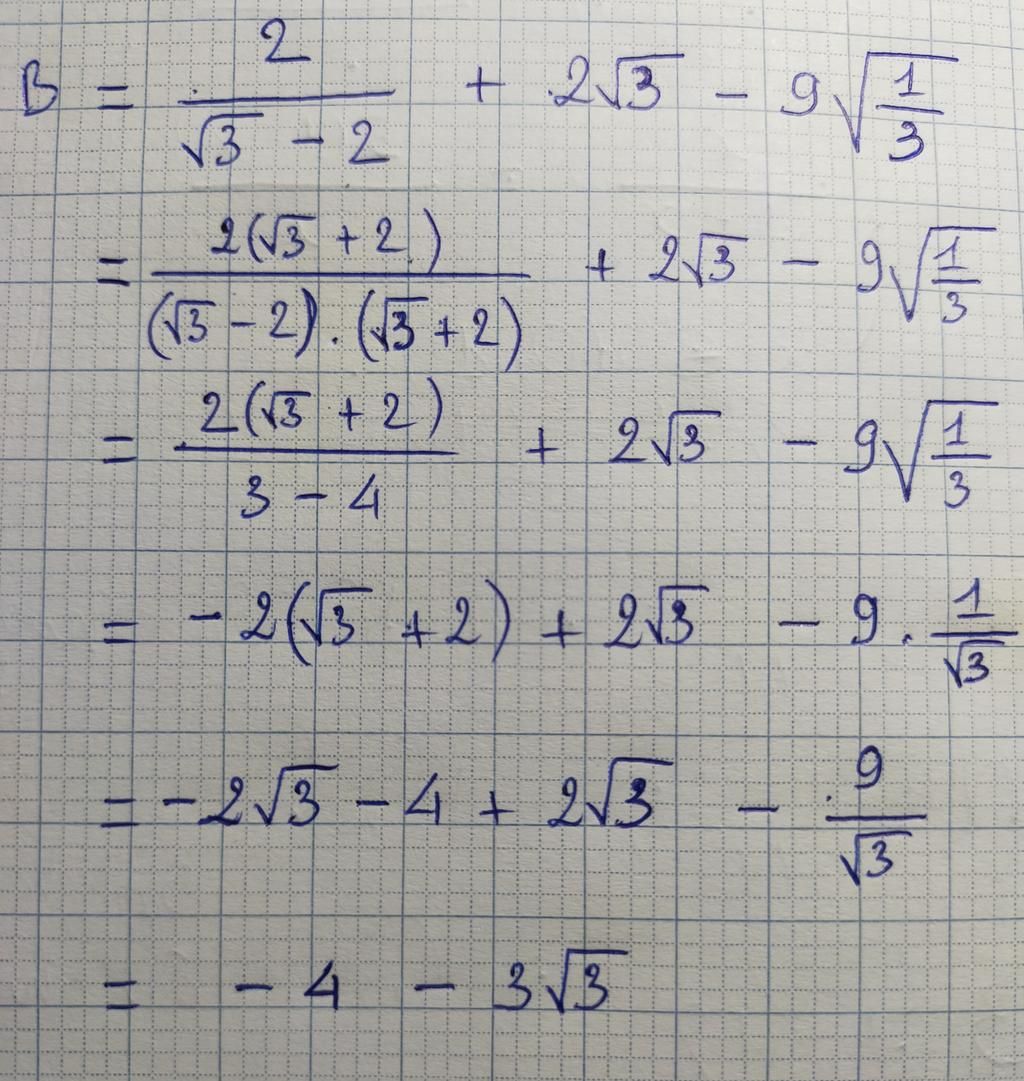 B = \frac{2}{\sqrt{3} - 2} + 2\sqrt{3} - 9\sqrt{\frac{1}{3}}
= \frac{2(\sqrt{3} + 2)}{(\sqrt{3} - 2) . (\sqrt{3} + 2)} + 2\sqrt{3} - 9\sqrt{\frac{1}{3}}
= \frac{2(\sqrt{3} + 2)}{3 - 4} + 2\sqrt{3} - 9\sqrt{\frac{1}{3}}
= - 2(\sqrt{3} + 2) + 2\sqrt{3} - 9 . \frac{1}{\sqrt{3}}
= - 2\sqrt{3} - 4 + 2\sqrt{3} - \frac{9}{\sqrt{3}}
= - 4 - 3\sqrt{3}